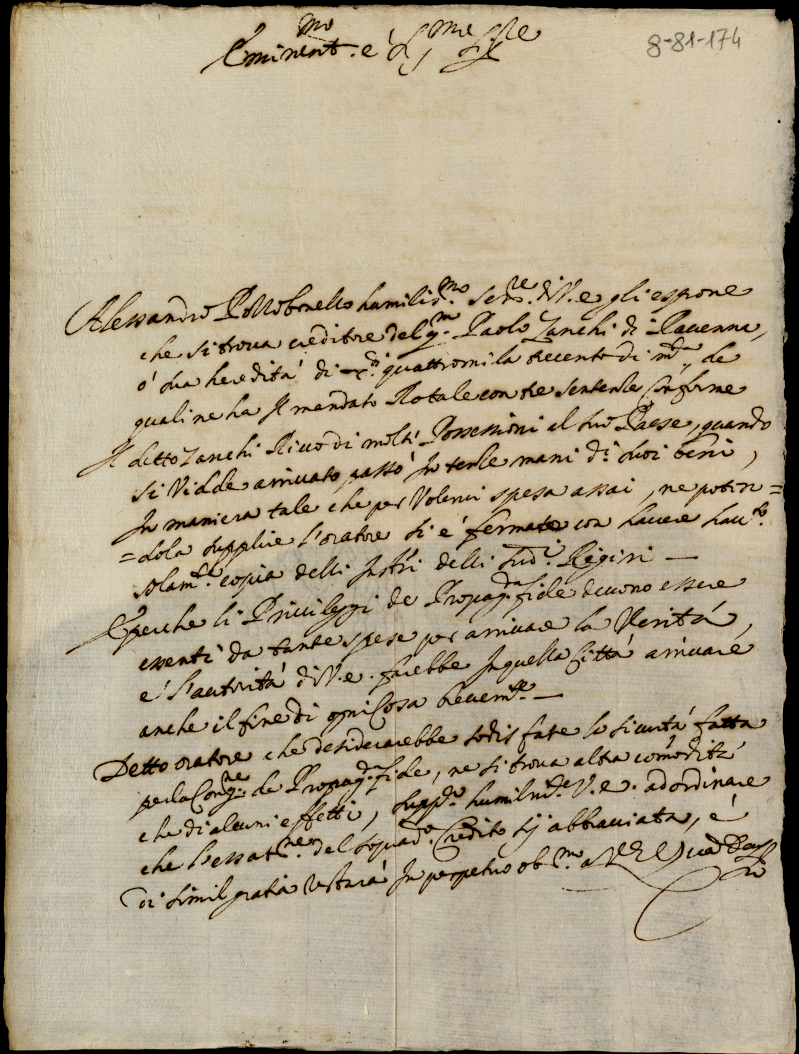 8-81-174
Eminent.mo e R.mo Sig.re
Alessandro Pottobonello humiliss.mo ser.re di V.e. gli espone
che si troua creditore del q.m Paolo Zanchi di Rauenna,
ò sua heredità di quattromila trecento di m.ta, de
quali ne ha Il mandato Rotale con tre sentenze Conforme
Il detto Zanchi Ricco di molti Possessioni al suo Paese, quando
si Vidde arriuato passò In terze mani di suoi beni,
In maniera tale che per Volerui spesa assai, ne poten=
=dola supplire l'oratore si è fermato con hauere hau.to
solam.te copia delli Instri delli sud.i Regiri —
E perche li Priuileggi de Propag.da fide deuono essere
essenti da tante spese per arriuare la Verità,
e l'autorità di V.e. farebbe In quella Città arriuare
anche il fine di ogni Cosa breuem.te —
Detto oratore che desiderarebbe sodisfare la sicurtà fatta
per la Cong.ne de Propag.da fide, ne si troua altra comodità
che di alcuni effetti, supp.ca humilm.te V.e. ad ordinare
che l'essat.ne del soprad.o Credito sij abbracciata, e
di simil gratia restarà In perpetuo ob.mo a V.E. Quam Deus